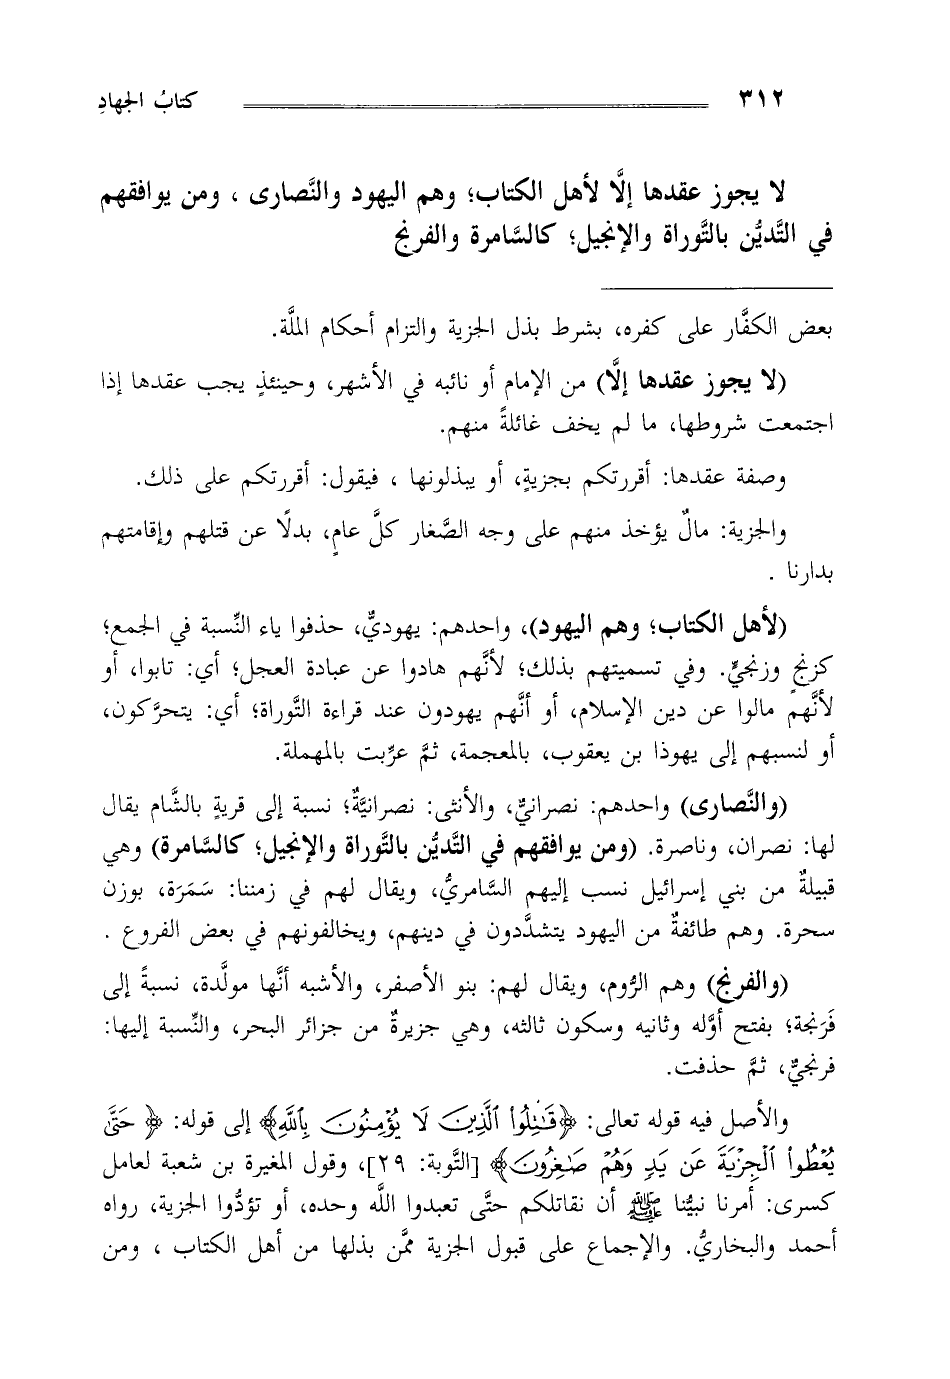 ٣١٢ كتابُ الجهادِ
لا يجوز عقدها إلَّا لأهل الكتاب؛ وهم اليهود والنَّصارى ، ومن يوافقهم
في التَّديُّن بالتَّوراة والإنجيل؛ كالسَّامرة والفرنج
بعض الكفَّار على كفره، بشرط بذل الجزية والتزام أحكام الملَّة.
(لا يجوز عقدها إلَّا) من الإمام أو نائبه في الأشهر، وحينئذٍ يجب عقدها إذا
اجتمعت شروطها، ما لم يخف غائلةً منهم.
وصفة عقدها: أقررتكم بجزيةٍ، أو يبذلونها ، فيقول: أقررتكم على ذلك.
والجزية: مالٌ يؤخذ منهم على وجه الصَّغار كلَّ عامٍ، بدلًا عن قتلهم وإقامتهم
بدارنا .
(لأهل الكتاب؛ وهم اليهود)، واحدهم: يهوديٌّ، حذفوا ياء النِّسبة في الجمع؛
كزنجٍ وزنجيٍّ. وفي تسميتهم بذلك؛ لأنَّهم هادوا عن عبادة العجل؛ أي: تابوا، أو
لأنَّهم مالوا عن دين الإسلام، أو أنَّهم يهودون عند قراءة التَّوراة؛ أي: يتحرَّكون،
أو لنسبهم إلى يهوذا بن يعقوب، بالمعجمة، ثمَّ عرِّبت بالمهملة.
(والنَّصارى) واحدهم: نصرانيٌّ، والأنثى: نصرانيَّةٌ؛ نسبة إلى قريةٍ بالشَّام يقال
لها: نصران، وناصرة. (ومن يوافقهم في التَّديُّن بالتَّوراة والإنجيل؛ كالسَّامرة) وهي
قبيلةٌ من بني إسرائيل نسب إليهم السَّامريُّ، ويقال لهم في زمننا: سَمَرَة، بوزن
سحرة. وهم طائفةٌ من اليهود يتشدَّدون في دينهم، ويخالفونهم في بعض الفروع .
(والفرنج) وهم الرُّوم، ويقال لهم: بنو الأصفر، والأشبه أنَّها مولَّدة، نسبةً إلى
فَرَنجة؛ بفتح أوَّله وثانيه وسكون ثالثه، وهي جزيرةٌ من جزائر البحر، والنِّسبة إليها:
فرنجيٌّ، ثمَّ حذفت.
والأصل فيه قوله تعالى: ﴿قَٰتِلُوا۟ ٱلَّذِينَ لَا يُؤْمِنُونَ بِٱللَّهِ﴾ إلى قوله: ﴿حَتَّىٰ
يُعْطُوا۟ ٱلْجِزْيَةَ عَن يَدٍ وَهُمْ صَٰغِرُونَ﴾ [التَّوبة: ٢٩]، وقول المغيرة بن شعبة لعامل
كسرى: أمرنا نبيُّنا ﷺ أن نقاتلكم حتَّى تعبدوا اللَّه وحده، أو تؤدُّوا الجزية، رواه
أحمد والبخاريُّ. والإجماع على قبول الجزية ممَّن بذلها من أهل الكتاب ، ومن